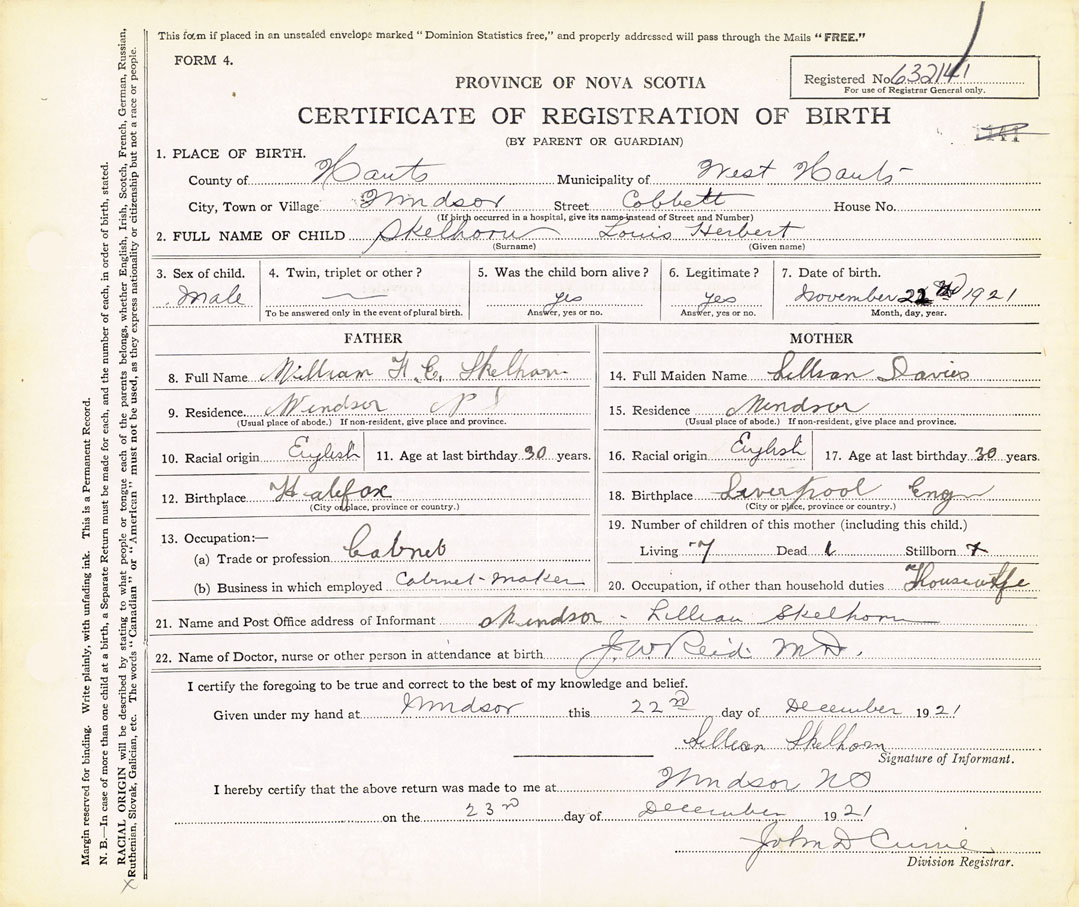 This form if placed in an unsealed envelope marked "Dominion Statistics free," and properly addressed will pass through the Mails "FREE."
FORM 4.
Registered No. 632141
For use of Registrar General only.
PROVINCE OF NOVA SCOTIA
CERTIFICATE OF REGISTRATION OF BIRTH
(BY PARENT OR GUARDIAN)
1. PLACE OF BIRTH.
County of Hants Municipality of West Hants
City, Town or Village Windsor Street Cobbett House No.
(If birth occurred in a hospital, give its name instead of Street and Number)
2. FULL NAME OF CHILD Skelhorn Louis Herbert
(Surname) (Given name)
3. Sex of child. 4. Twin, triplet or other? 5. Was the child born alive? 6. Legitimate? 7. Date of birth.
Male — yes yes November 22nd 1921
To be answered only in the event of plural birth. Answer, yes or no. Answer, yes or no. Month, day, year.
FATHER
8. Full Name William H. C. Skelhorn
9. Residence. Windsor N S
(Usual place of abode.) If non-resident, give place and province.
10. Racial origin English 11. Age at last birthday 30 years.
12. Birthplace Halifax
(City or place, province or country.)
13. Occupation:—
(a) Trade or profession Cabnet
(b) Business in which employed Cabnet-maker
MOTHER
14. Full Maiden Name Lillian Davies
15. Residence Windsor
(Usual place of abode.) If non-resident, give place and province.
16. Racial origin English 17. Age at last birthday 30 years.
18. Birthplace Liverpool Eng
(City or place, province or country.)
19. Number of children of this mother (including this child.)
Living 7 Dead 1 Stillborn
20. Occupation, if other than household duties Housewife
21. Name and Post Office address of Informant Windsor - Lillian Skelhorn
22. Name of Doctor, nurse or other person in attendance at birth J. W Reid M D.
I certify the foregoing to be true and correct to the best of my knowledge and belief.
Given under my hand at Windsor this 22nd day of December 1921
Lillian Skelhorn
Signature of Informant.
I hereby certify that the above return was made to me at Windsor NS
on the 23rd day of December 1921
John D Currie
Division Registrar.
Margin reserved for binding. Write plainly, with unfading ink. This is a Permanent Record.
N. B.—In case of more than one child at a birth, a Separate Return must be made for each, and the number of each, in order of birth, stated.
RACIAL ORIGIN will be described by stating to what people or tongue each of the parents belongs, whether English, Irish, Scotch, French, German, Russian,
Ruthenian, Slovak, Galician, etc. The words "Canadian" or "American" must not be used, as they express nationality or citizenship but not a race or people.